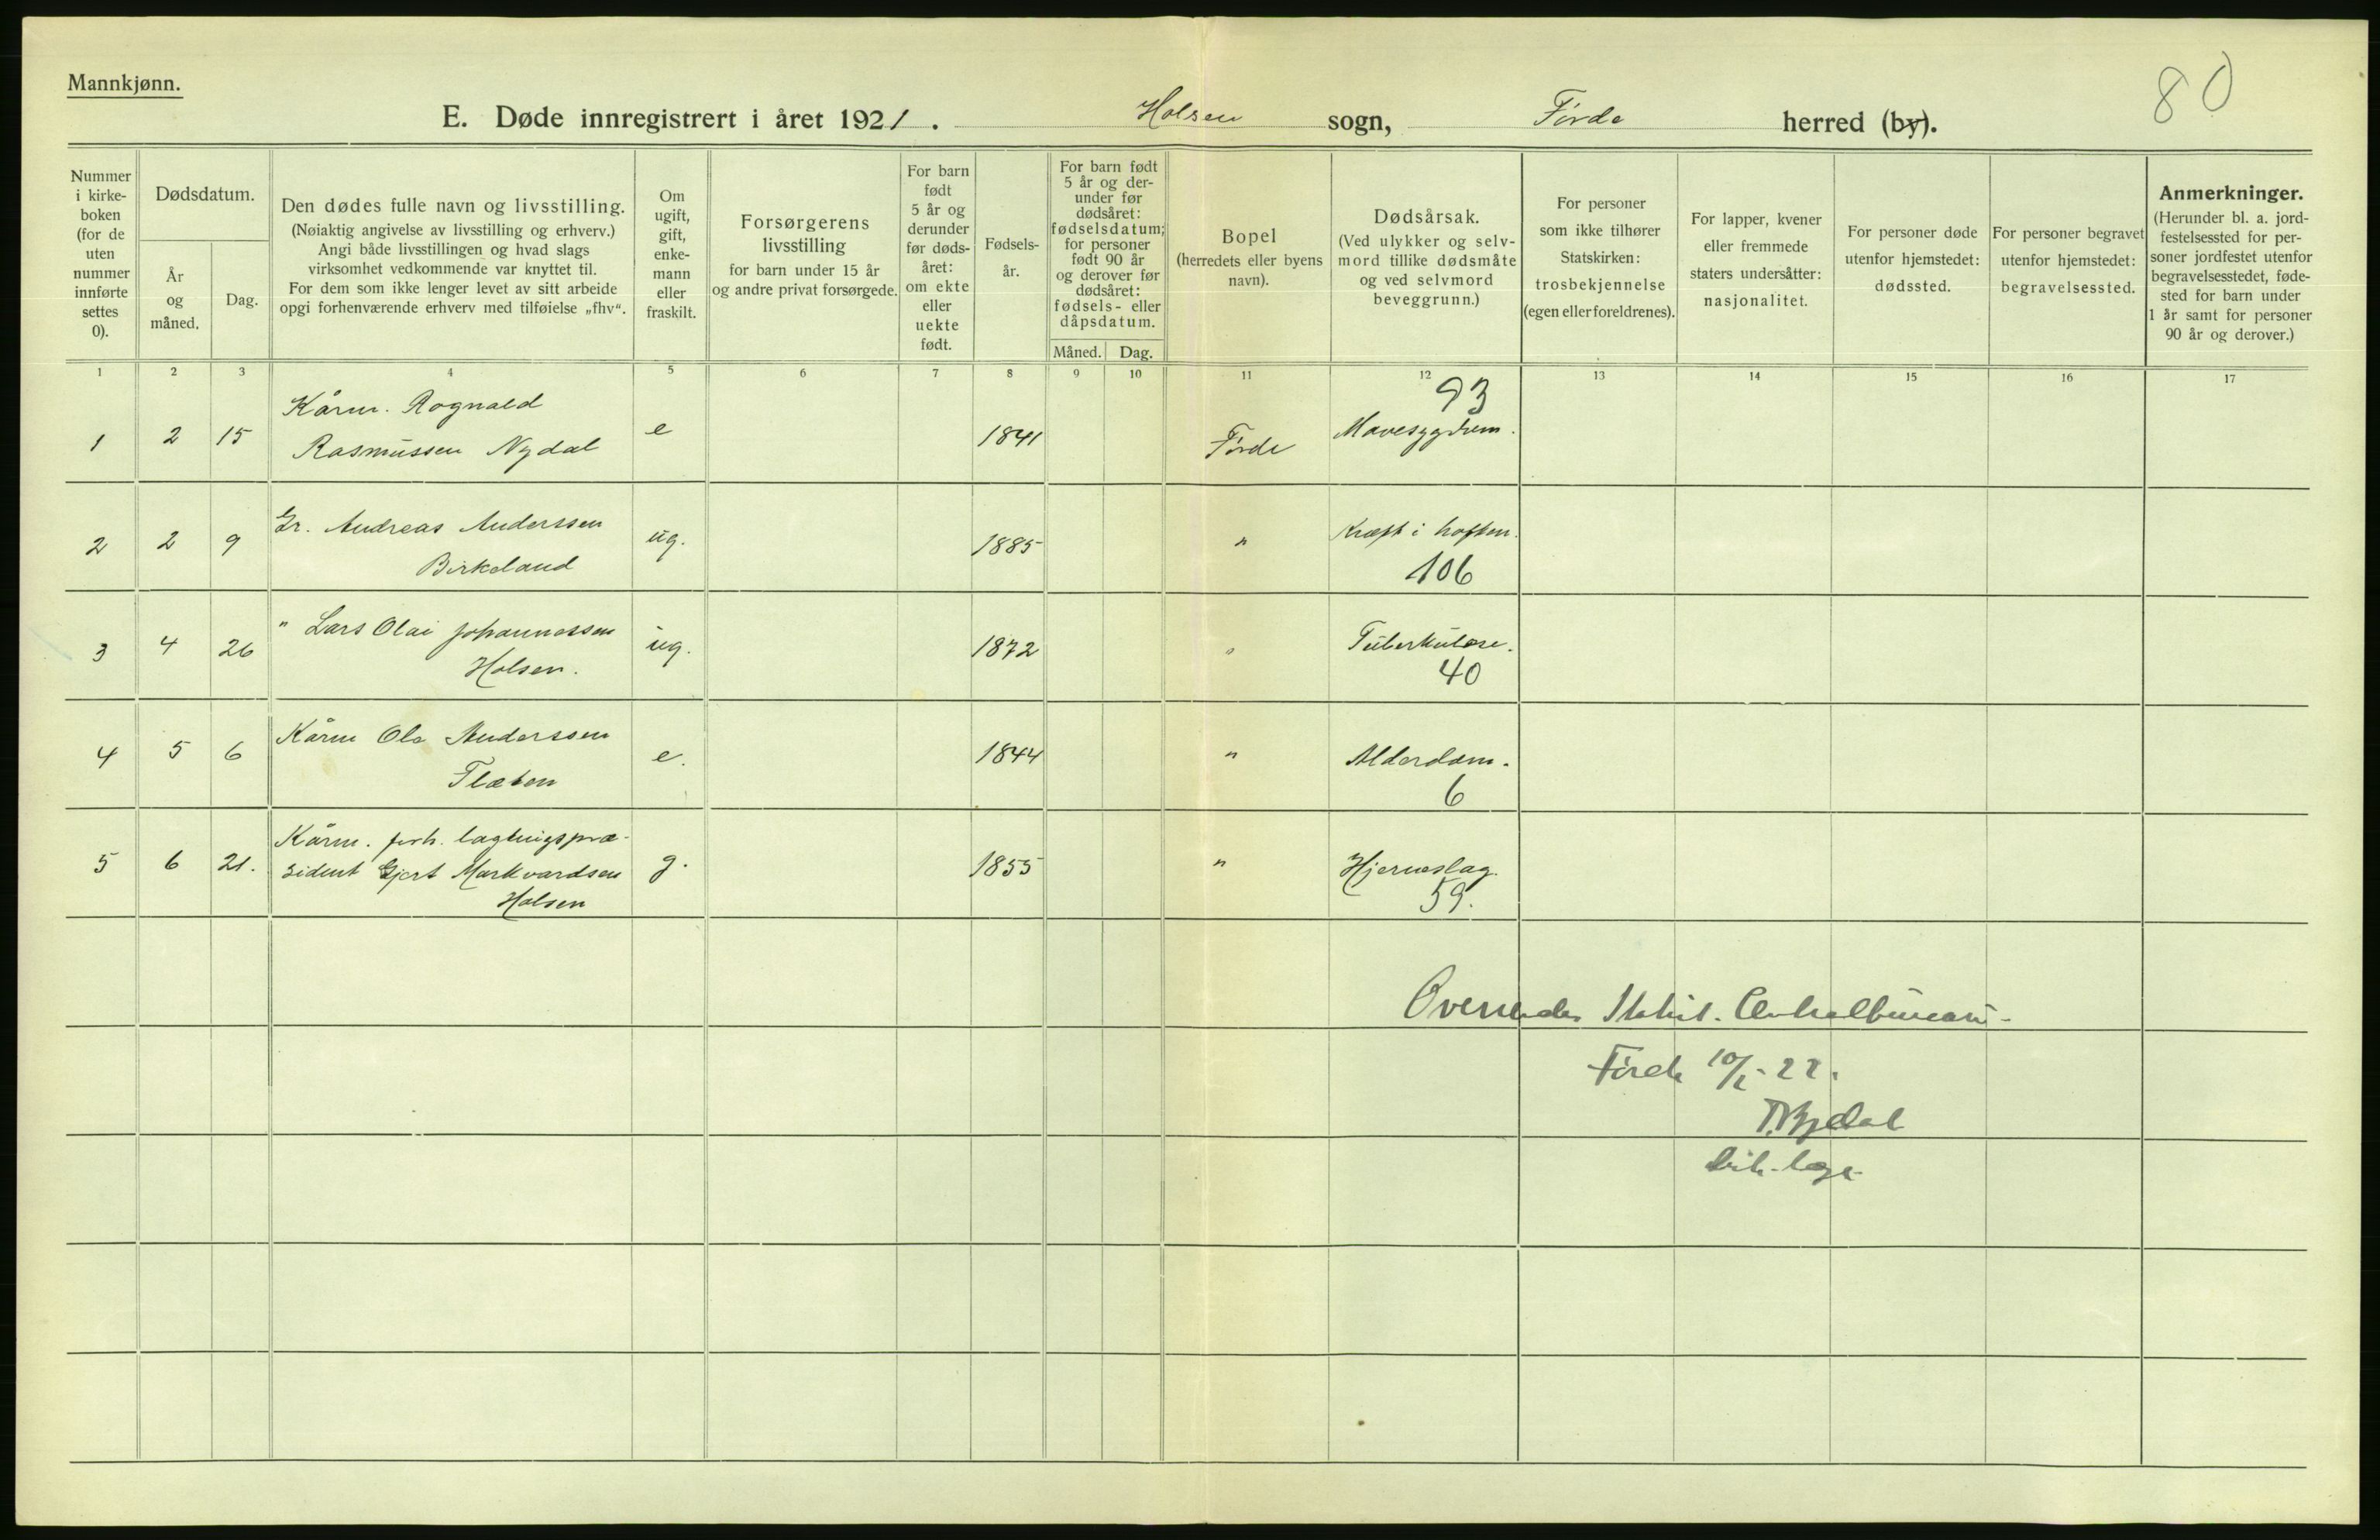 Mannkjønn.
80
E. Døde innregistrert i året 1921. Holsen sogn, Førde herred (by).
Nummer i kirke-boken (for de uten nummer innførte settes 0).
Dødsdatum.
År og måned.
Dag.
Den dødes fulle navn og livsstilling.
(Nøiaktig angivelse av livsstilling og erhverv.)
Angi både livsstillingen og hvad slags
virksomhet vedkommende var knyttet til.
For dem som ikke lenger levet av sitt arbeide
opgi forhenværende erhverv med tilføielse „fhv“.
Om ugift, gift, enke-mann eller fraskilt.
Forsørgerens
livsstilling
for barn under 15 år
og andre privat forsørgede.
For barn født 5 år og derunder før døds-året: om ekte eller uekte født.
Fødsels-år.
For barn født 5 år og der-under før dødsåret: fødselsdatum; for personer født 90 år og derover før dødsåret: fødsels- eller dåpsdatum.
Måned. Dag.
Bopel
(herredets eller byens
navn).
Dødsårsak.
(Ved ulykker og selv-
mord tillike dødsmåte
og ved selvmord
beveggrunn.)
For personer
som ikke tilhører
Statskirken:
trosbekjennelse
(egen eller foreldrenes).
For lapper, kvener
eller fremmede
staters undersåtter:
nasjonalitet.
For personer døde
utenfor hjemstedet:
dødssted.
For personer begravet
utenfor hjemstedet:
begravelsessted.
Anmerkninger.
(Herunder bl. a. jord-
festelsessted for per-
soner jordfestet utenfor
begravelsesstedet, føde-
sted for barn under
1 år samt for personer
90 år og derover.)
1 2 3 4 5 6 7 8 9 10 11 12 13 14 15 16 17
1 2 15 Kårm. Ragnald Rasmussen Nydal e 1841 Førde Mavesygdom. 93
2 2 9 Gr. Andreas Anderssen Birkeland ug. 1885 " Kræft i hoften. 106
3 4 26 " Lars Olai Johannessen Holsen. ug. 1872 " Tuberkulose. 40
4 5 6 Kårm Ole Anderssen Flæten e. 1844 " Alderdom. 6
5 6 21. Kårm. forh. lagtingspræ-
sident Gjert Markvardsen
Holsen g. 1855 " Hjerneslag. 59.
Oversendes Statist. Centralbureau.
Førde 10/1-22.
Dist. læge